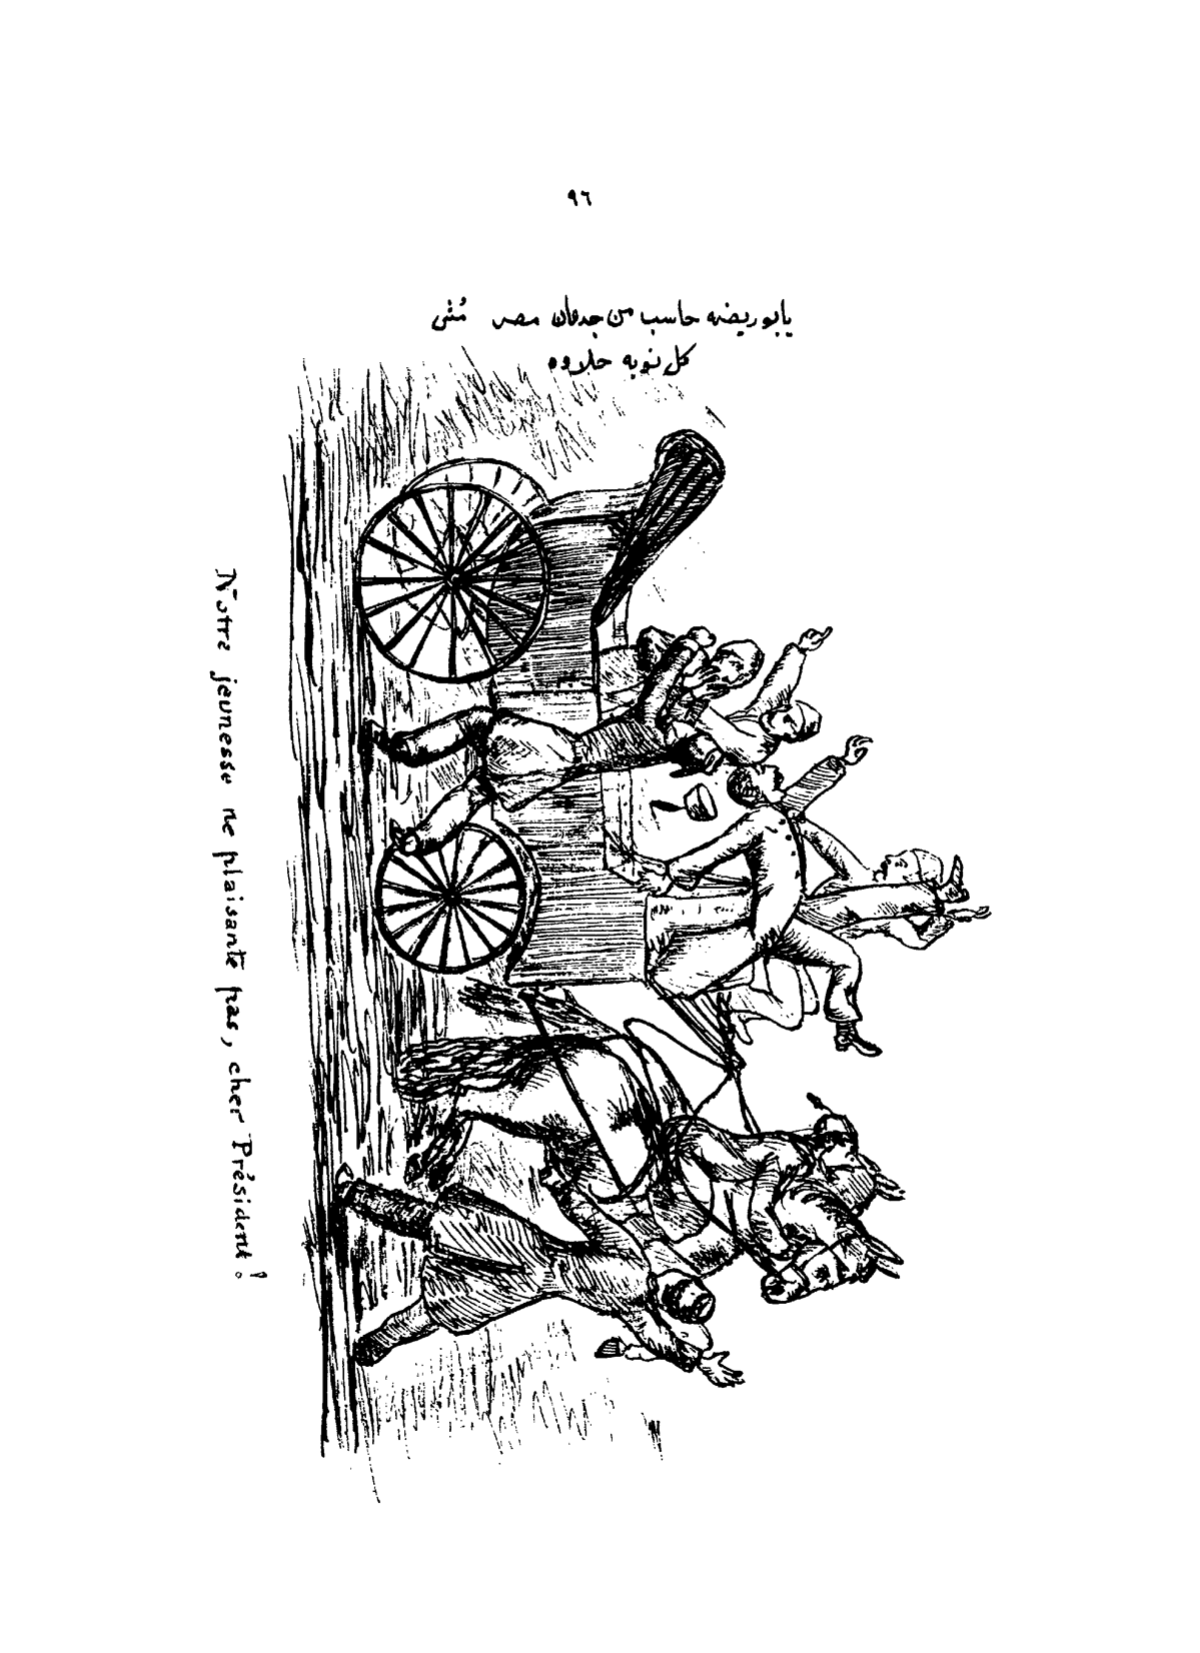 ٩٦
يابو ريضه حاسب من جدعان مصر مُشْ
كل نوبه حلاوه
Notre jeunesse ne plaisante pas, cher Président !